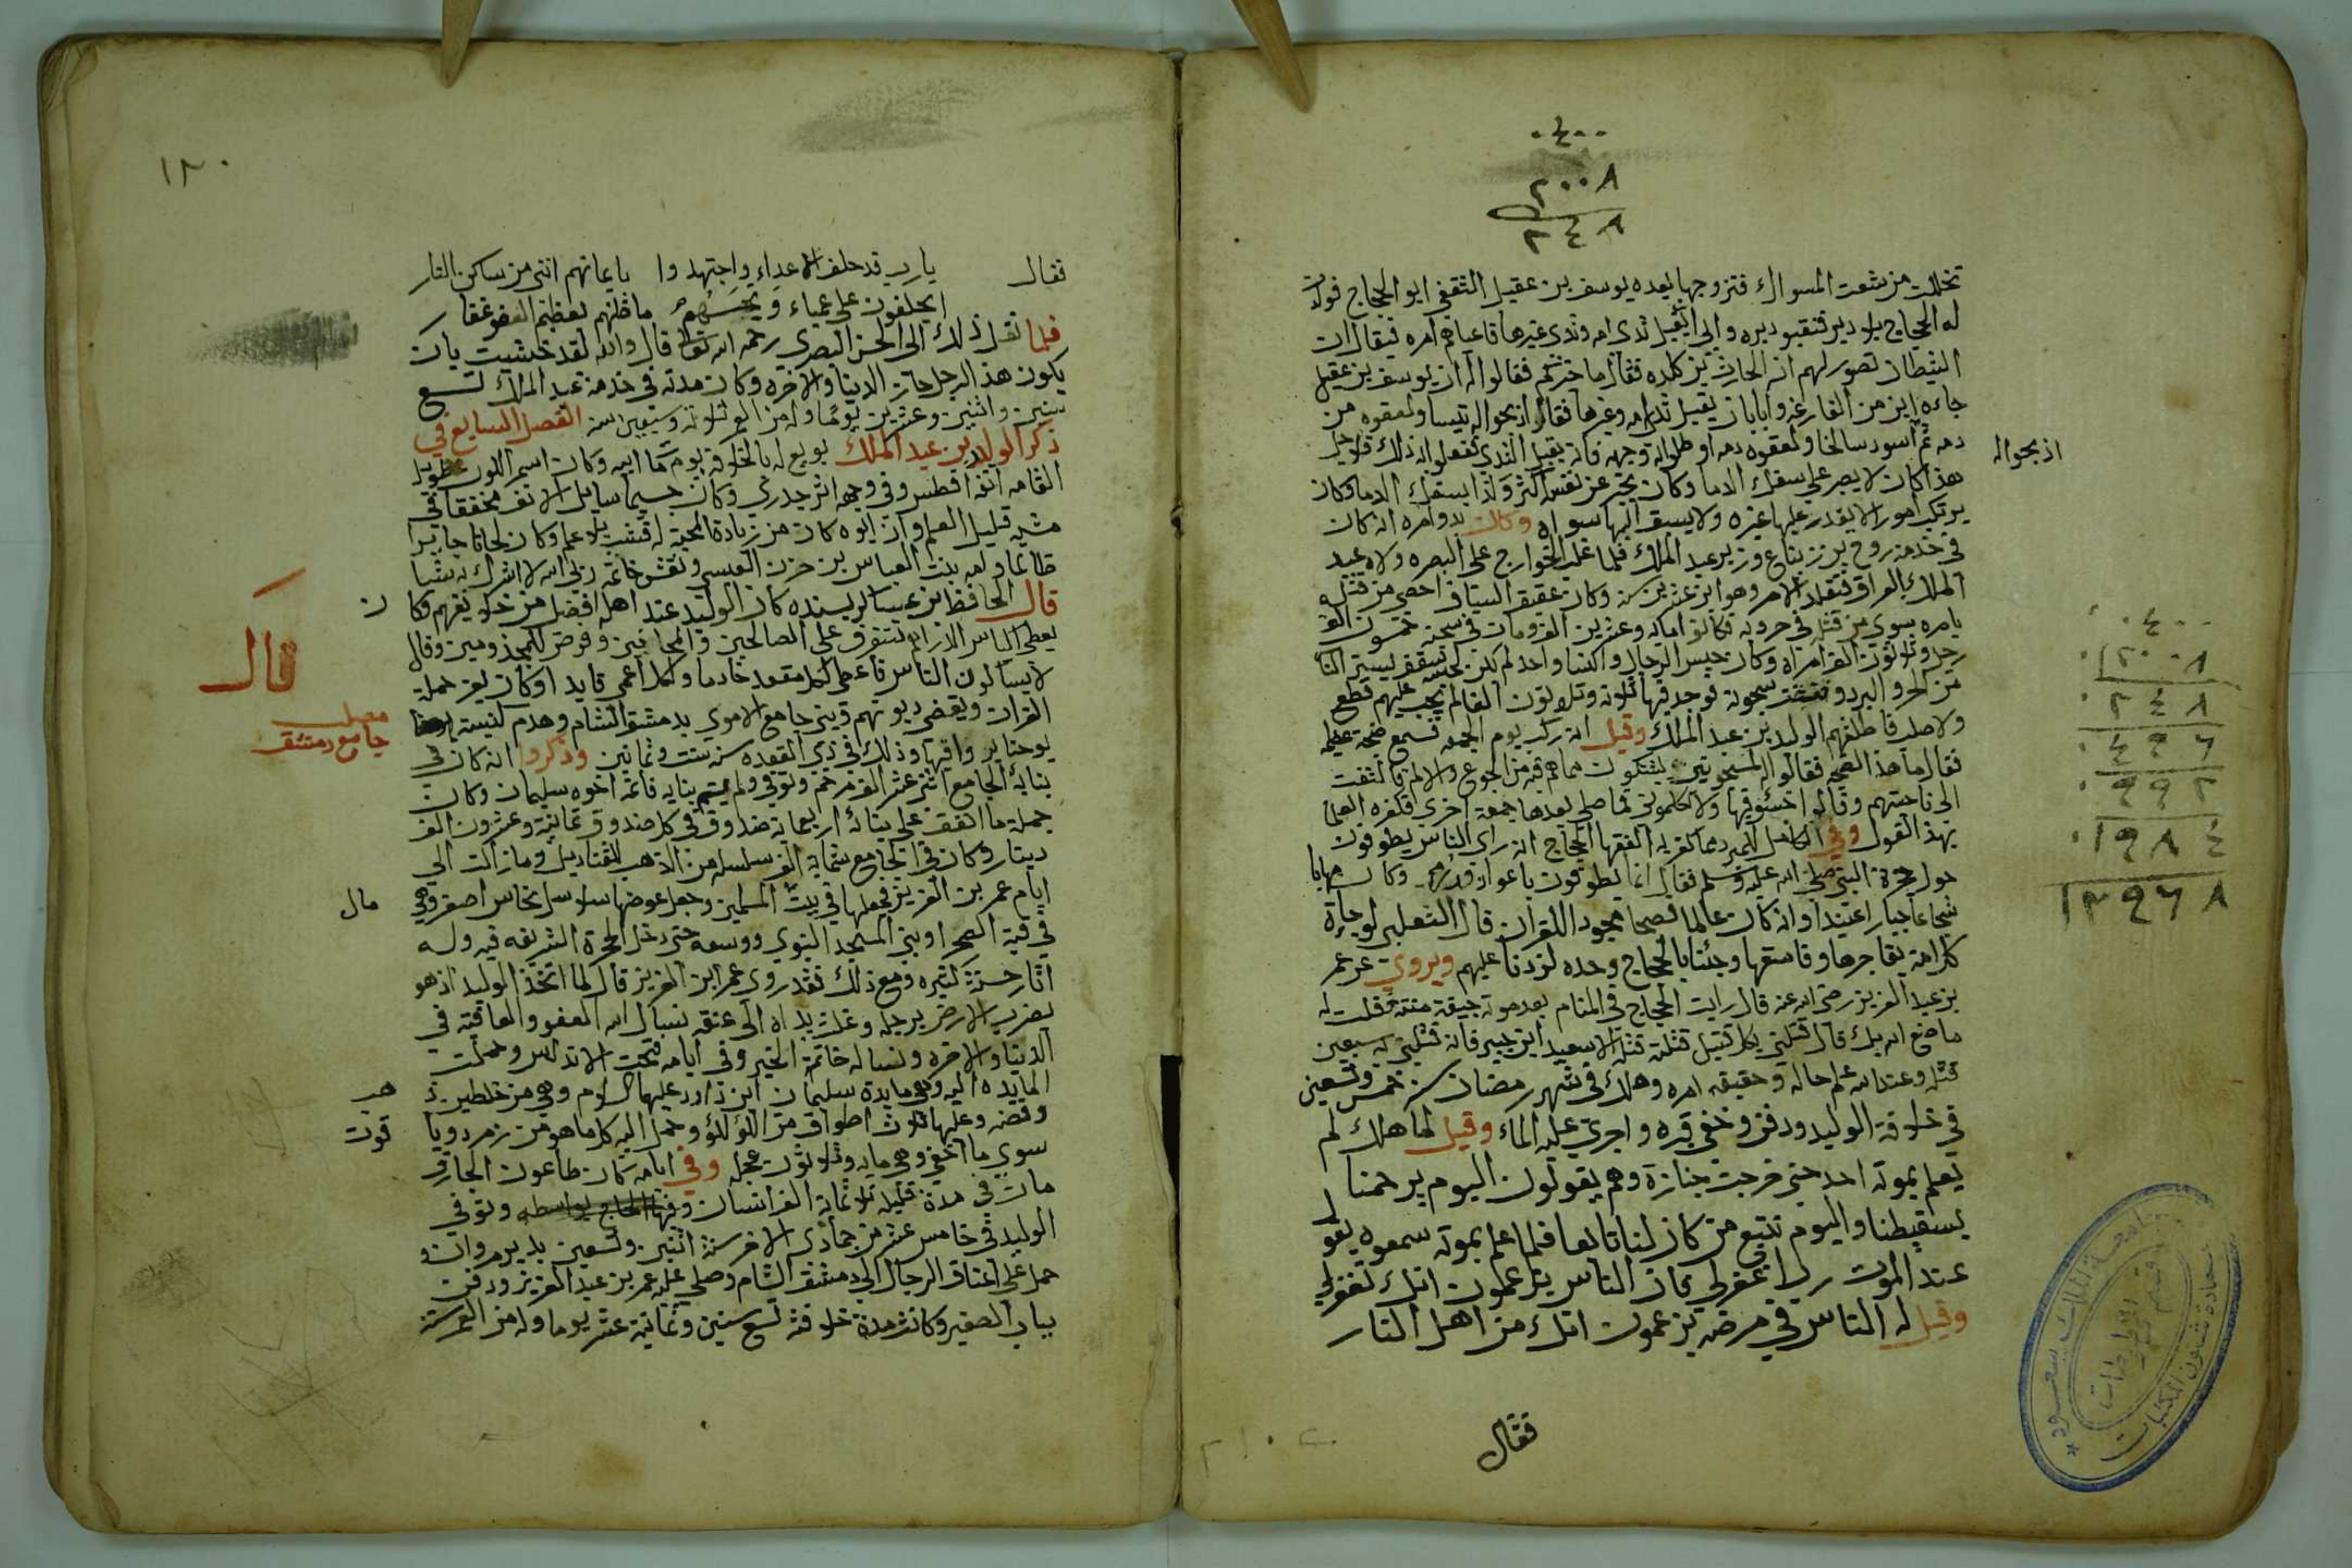 ٤٠٠
٢٠٠٨
٢٤٨
تخللت من شعت المسواك فتزوجها بعده يوسف بن عقيل الثقفي ابو الحجاج فولدت
له الحجاج بلا دبر فنقبو دبره وابى ان يقبل ثدى امه وثدى غيرها فاعياهم امره فيقال ان
الشيطان تصور لهم انه الحارث بن كلده فقال ما خبركم فقالوا له ان يوسف بن عقيل
جاءه ابن من الفارغه وابا ان يقبل ثدى امه وغيرها فقال اذبحوا له تيسا ولعقوه من
دمه ثم اسود سالخا ولعقوه دمه واطلوا به وجهه فانه يقبل الثدي ففعلوا به ذلك فلاجل
اذبحوا له
هذا كان لا يصبر على سفك الدما وكان يخبر عن نفسه اكثر ولذا يسفك الدما وكان
يرتكب امورا لا يقدر عليها غيره ولا يسبق اليها سواه وكان بدو امره انه كان
في خدمة روح بن زنباع وزير عبد الملك فلما غلب الخوارج على البصره ولاه عبد
الملك بالعراق فتقلد الامر وهو ابن عشرين سنه وكان عقيق السياف احصى من قتله
بامره سوى من قتل في حروبه فكانو اماية وعشرين الف ومات في سجنه خمسون الف
رجل وثلاثون الف امراه وكان حبس الرجال والنسا واحد لم يكن لحبسه سقف ليستر الناس
من الحر والبرد وفتشت سجونه فوجد فيها ثلاثة وثلاثون الفا لم يجب عليهم قطع
ولا صلب فاطلقهم الوليد بن عبد الملك وقيل انه ركب يوم الجمعه فسمع ضجة عظيمه
فقال ما هذا الضجه فقالوا له المسجونين يشتكون مما هم فيه من الجوع والالم فالتفت
الى ناحيتهم وقال اخسئو فيها ولا تكلمون فما صلى بعدها جمعة اخرى فكفره العلما
بهذا القول وفي الكامل للمبرد مما كفر به الفقها الحجاج انه راى الناس يطوفون
حول حجرة النبي صلى الله عليه وسلم فقال انما يطوفون باعواد ورمه وكان مهابا
شجاعا جبارا عنيدا وانه كان عالما فصيحا مجودا للقران قال الثعلبي لو جاءت
كل امه بفاجرها وفاسقها وجئنا بالحجاج وحده لزدنا عليهم ويروى عن عمر
بن عبد العزيز رضي الله عنه قال رايت الحجاج في المنام بعد موته جيفة منتنه فقلت له
ما صنع الله بك قال قتلني بكل قتيل قتلته قتلة الا سعيد ابن جبير فانه قتلني به سبعين
قتله وعند الله علم حاله وحقيقه امره وهلك في شهر رمضان سنه خمس وتسعين
في خلافة الوليد ودفن وخفي قبره واجري عليه الماء وقيل لما هلك لم
يعلم بموته احد حتى خرجت جنازة وهم يقولون اليوم يرحمنا
يسقيطنا واليوم نتبع من كان لنا تابعا فلما علم بموته سمعوه يقول
عند الموت رب اغفر لي فان الناس يزعمون انك لا تغفر لي
وقيل له الناس في مرضه يزعمون انك من اهل النار
فقال
٤٠٠
٢٠٠٨
٢٤٨
٤٩٦
٩٩٢
١٩٨٤
١٢٩٦٨
جامعة الملك سعود
عمادة شئون المكتبات
قسم المخطوطات
١٣٠
فقال يا رب قد حلف الاعداء واجتهدوا بايمانهم انني من ساكن النار
ايحلفون على عمياء ويحسبهم ما ظنهم بعظيم العفو غفار
فلما نقل ذلك الى الحسن البصري رحمه الله تعالى قال والله لقد خشيت بان
يكون هذ الرجل حاز الدينا والاخره وكان مدته في خدمة عبد الملك تسع
سنين واثنين وعشرين يوما وله من العمر ثلاثة وسبعين سنه الفصل السابع في
ذكر الوليد بن عبد الملك بويع له بالخلافه يوم مات ابيه وكان اسمر اللون طويل
القامه انفه افطس وفي وجهه اثر جدري وكان جسيما سايل الانف مخففقا في
مشيه قليل العلم وان ابوه كان من زيادة المحبة له فشب بلا علم وكان لحانا جابرا
ظالما وامه بنت العباس بن حزن العبسي ونقش خاتمه ربي الله لا اشرك به شيا
قال الحافظ بن عساكر بسنده كان الوليد عند اهله افضل من خلايفهم فكا
ن
يعطي الناس الدراهم لتتفرق على الصالحين والمجانين وفرض للمجذومين وقال
لا يسالون الناس فاعطى لكل مقعد خادما ولكل اعمى قايد اوكان يعز حملة
قال
القران ويقضي ديونهم وبنى جامع الاموي بدمشق الشام وهدم كنيسه
مطلب
جامع دمشق
يوحنا بن واقها وذلك في ذي القعده سنه ست وثمانين وذكروا انه كان في
بناية الجامع اثني عشر الف مرخم وتوفي ولم يتم بنايه فاتمه اخوه سليمان وكان
جملة ما انفق على بنائه اربعماية صندوق في كل صندوق ثمانية وعشرون الف
دينار وكان في الجامع ستماية الف سلسله من الذهب للقناديل وما زالت الى
ايام عمر بن العزيز فجعلها في بيت المسلمين وجعل عوضها سلاسل نحاس اصفر وهي
مال
في قبة الصخرا وبنى المسجد النبوي ووسعه حتى دخل الحجرة الشريفه فيه وله
اثار حسنة كثيره ومع ذلك فقد روي عمر ابن العزيز قال لما اتخذ الوليد اذ هو
يضرب الارض برجله وغلت يداه الى عنقه نسال الله العفو والعافية في
الدنيا والاخره ونساله خاتمة الخير وفي ايامه فتحت الاندلس وحملت
المايده اليه وهي مايدة سليمان ابن داود عليهما السلام وهي من خلطين ذ
هب
وفضه وعليها ثلاث اطواق من اللؤلؤ وحمل اليه كلما هو من زمرد ويا
قوت
سوى ما اخفي وهي مايه وثلاثون عجله وفي ايامه كان طاعون الجارف
مات في مدة قليله ثلاثماية الف انسان وفيها الحجاج بواسطه وتوفي
الوليد في خامس عشر من جمادى الاخر سنة اثنين وتسعين بدير مروان و
حمل على اعناق الرجال الى دمشق الشام وصلى عليه عمر بن عبد العزيز ودفن
بباب الصغير وكانت مدة خلافته تسع سنين وثمانية عشر يوما وله من العمر ستة